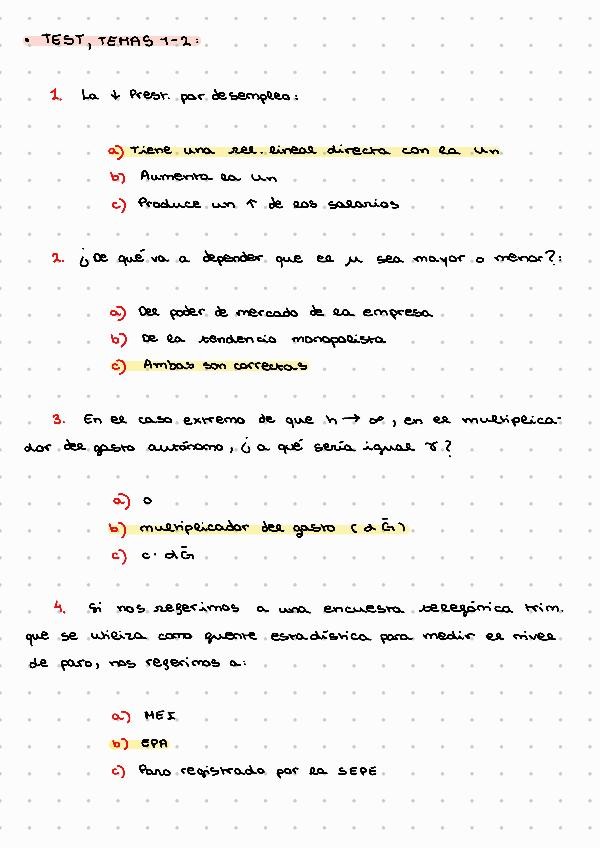 • TEST, TEMAS 1-2:
1. La ↓ Prest. por desempleo:
a) Tiene una rel. lineal directa con la Un
b) Aumenta la Un
c) Produce un ↑ de los salarios
2. ¿De qué va a depender que el μ sea mayor o menor?:
a) Del poder de mercado de la empresa
b) De la tendencia monopolista
c) Ambas son correctas
3. En el caso extremo de que h → ∞, en el multiplica-
dor del gasto autónomo, ¿a qué sería igual γ?
a) 0
b) multiplicador del gasto (α Ḡ)
c) c · αḠ
4. Si nos referimos a una encuesta telefónica trim.
que se utiliza como fuente estadística para medir el nivel
de paro, nos referimos a:
a) MEI
b) EPA
c) Paro registrado por la SEPE